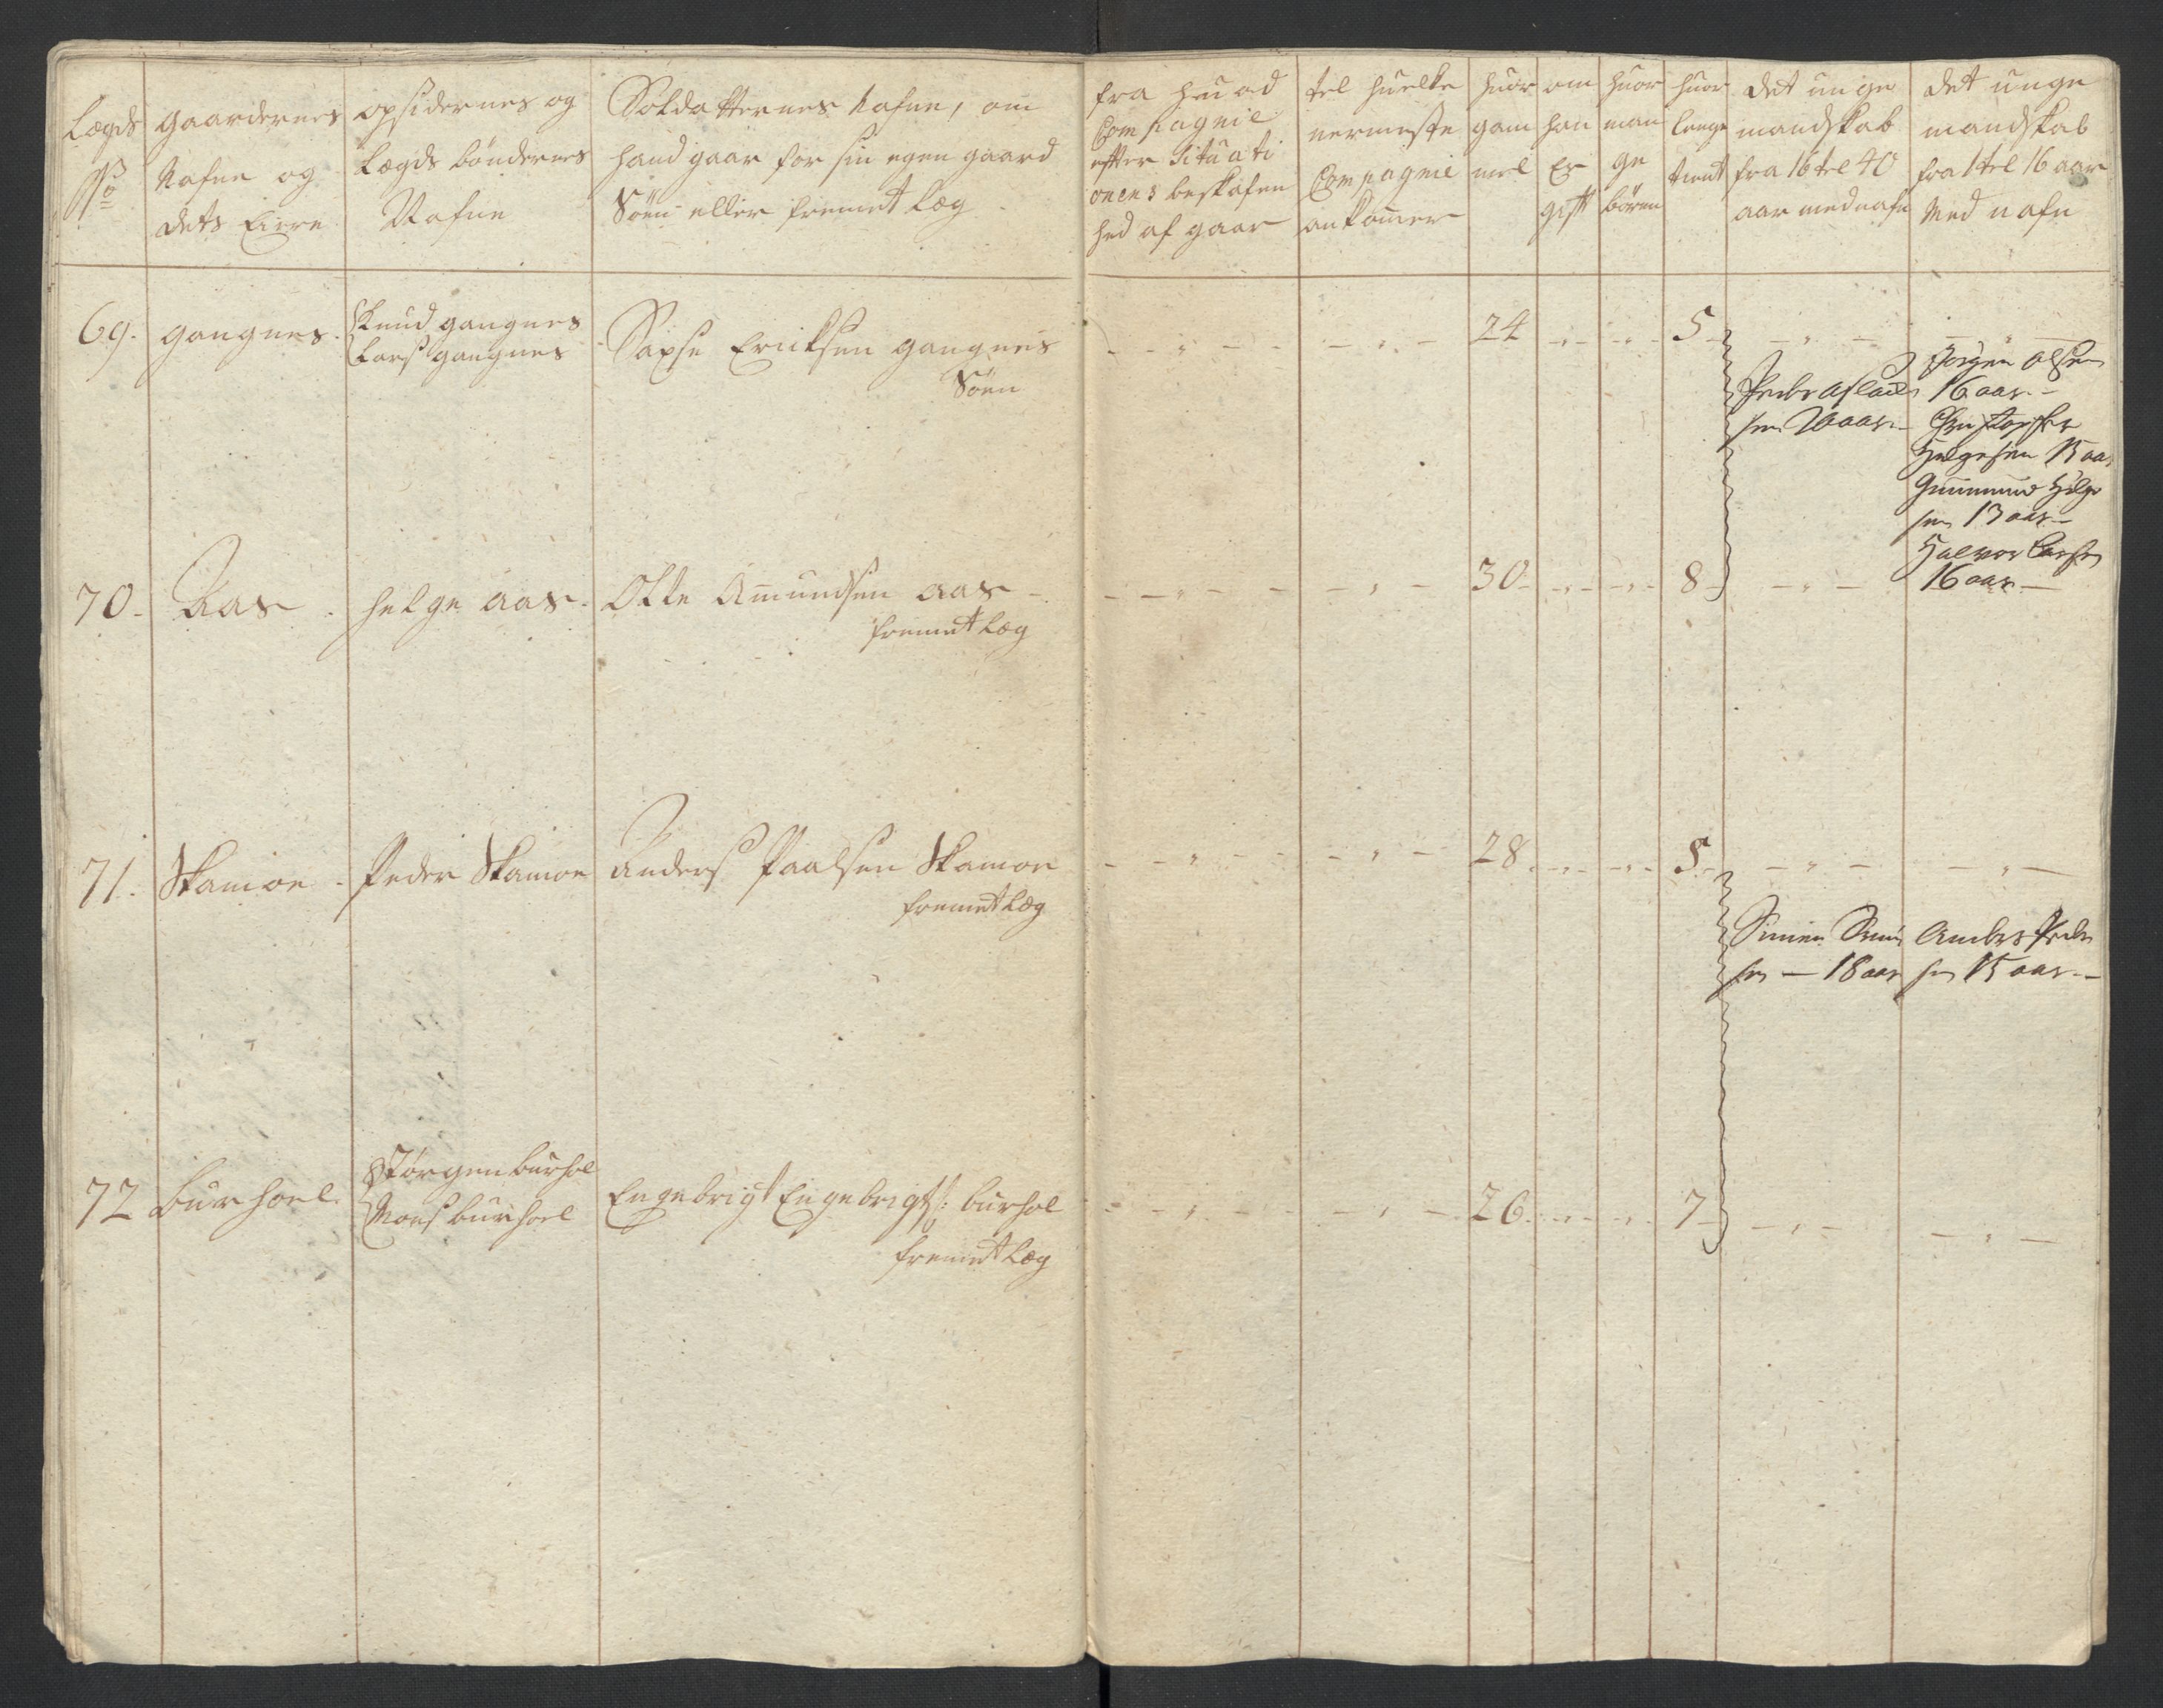 Lægds
No
gaardernes
Nafne og
dets Eiere
opsidernes og
Lægds bøndernes
Nafne
Soldatternes Nafne, om
hand gaar for sin egen gaard
Søen eller fremmet læg
fra huad
Compagnie
efter Situati
onens beskafen
hed af gaar
tel huelke
nermeste
Compagnie
ankommer
huor
gam
mel
om
han
Er
gift
huor
man
ge
børen
huor
lenge
tient
det unge
mandskab
fra 16 tel 40
aar med nafn
det unge
mandskab
fra 1 tel 16 aar
Med nafn
69. gangnes. Knud gangnes
Lars gangnes
Sapse Ericksen gangnes
Søen
24 5
Peder
sen aar
Jørgen Olsen
16 aar
Christopher
Helgesen 15 aar
Gummund Helge
sen 13 aar
Halvor Larsen
16 aar
70. Aas. helge Aas. Olle Amundsen Aas
fremmet læg
30 8
71. Skamoe. Peder Skamoe Anders Paalsen Skamoe
fremmet læg
28. 5
Simen
sen 18 aar
Anders Peder
sen 15 aar
72 burhoel. Jørgen burhol
Mons burhoel
Engebrigt Engebrigts: burhol
fremmet læg
26. 7